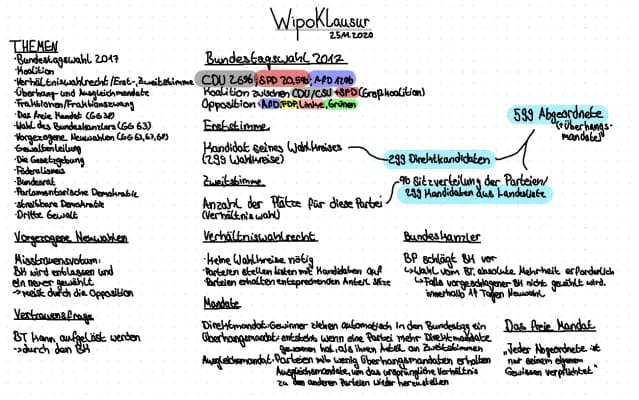 WipoKlausur
25.11.2020
THEMEN
·Bundestagswahl 2017
·Koalition
·Verhältniswahlrecht/Erst-,Zweitstimme
·Überhang- und Ausgleichmandate
·Fraktionen/Fraktionszwang
·Das freie Mandat (GG38)
·Wahl des Bundeskanzlers (GG 63)
·Vorgezogene Neuwahlen (GG 63,67,68)
·Gewaltenteilung
·Die Gesetzgebung
·Föderalismus
·Bundesrat
·Parlamentarische Demokratie
·streitbare Demokratie
·Dritte Gewalt
Bundestagswahl 2017
CDU 26%; SPD 20,5%; AFD 12%
Koalition zwischen CDU/CSU +SPD (Großkoalition)
Opposition AFD, FDP, Linke, Grünen
Erststimme
Kandidat seines Wahlkreises
(299 Wahlkreise)
299 Direktkandidaten
599 Abgeordnete
(+Überhangs-
mandate)
Zweitstimme
Anzahl der Plätze für diese Partei
(Verhältniswahl)
% Sitzverteilung der Parteien/
299 Kandidaten aus Landesliste
Vorgezogene Neuwahlen
Misstrauensvotum:
BK wird entlassen und
ein neuer gewählt
→meist durch die Opposition
Vertrauensfrage
BT kann aufgelöst werden
→durch den BK
Verhältniswahlrecht
·Keine Wahlkreise nötig
·Parteien stellen Listen mit Kandidaten auf
·Parteien erhalten entsprechenden Anteil Sitze
Bundeskanzler
BP schlägt BK vor
↳Wahl vom BT, absolute Mehrheit erforderlich
↳Falls vorgeschlagener BK nicht gewählt wird,
innerhalb 14 Tagen Neuwahl
Mandate
Direktmandat·Gewinner ziehen automatisch in den Bundestag ein
Überhangsmandat·entsteht, wenn eine Partei mehr Direktmandate
gewonnen hat, als ihren Anteil an Zweitstimmen
Ausgleichsmandat·Parteien mit wenig Überhangsmandaten erhalten
Ausgleichsmandate, um das ursprüngliche Verhältnis
zu den anderen Parteien wieder herzustellen
Das freie Mandat
„Jeder Abgeordnete ist
nur seinem eigenen
Gewissen verpflichtet"